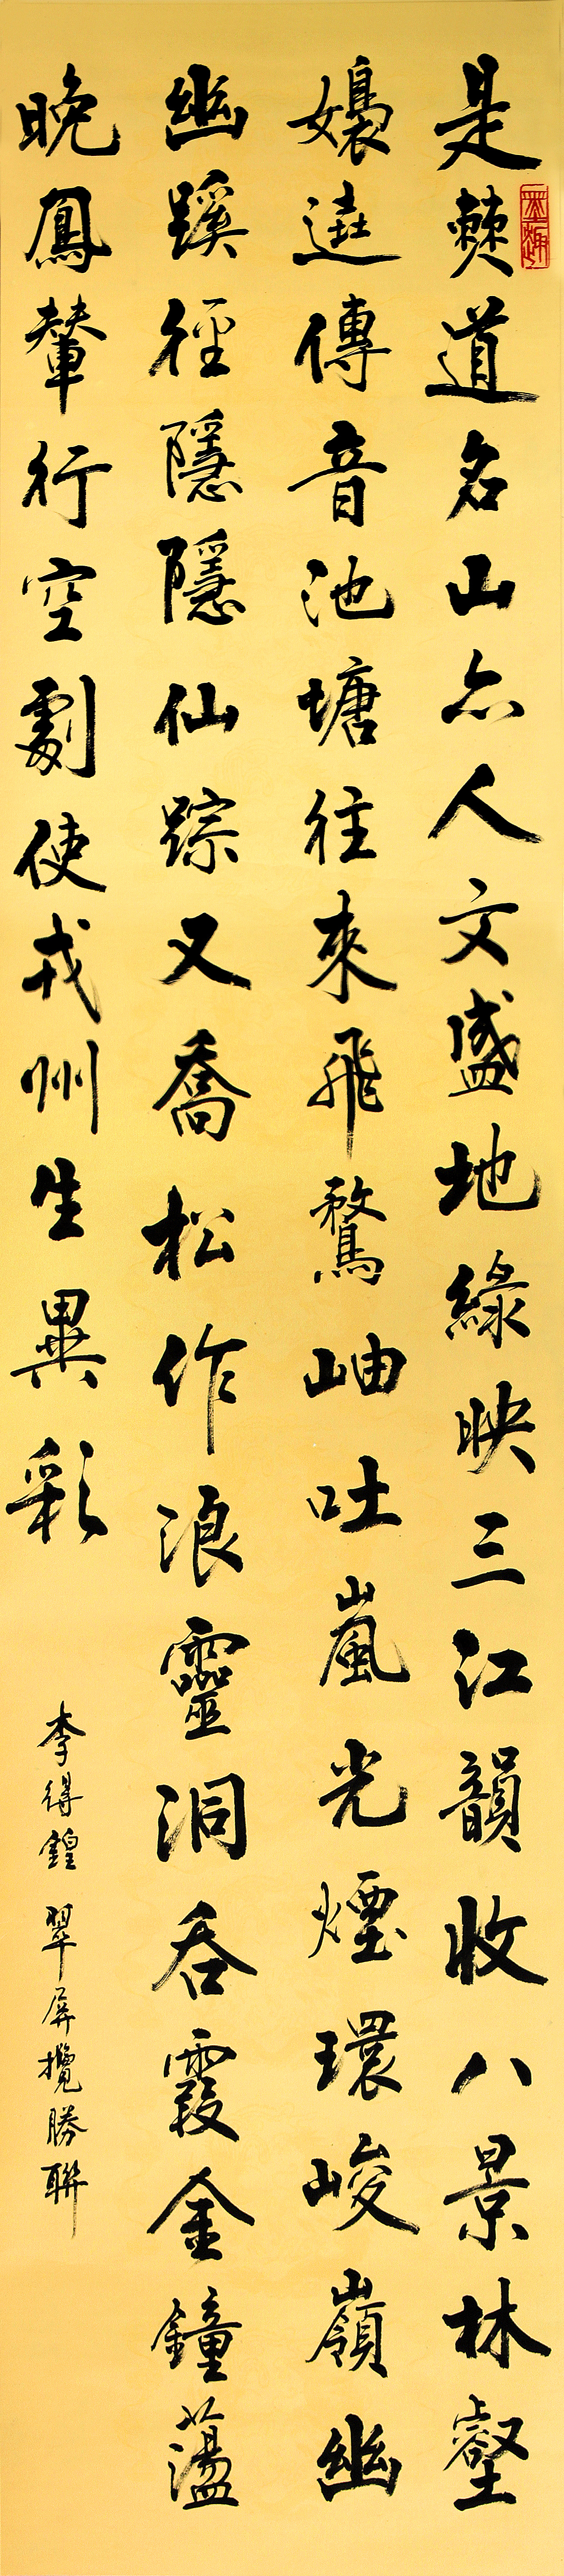 是僰道名山亦人文盛地綠映三江韻收八景林壑
墨趣
嬝遶傳音池塘往來飛騖岫吐嵐光煙環峻嶺幽
幽蹊徑隱隱仙踪又喬松作浪靈洞吞霞金鐘蕩
晚鳳輦行空劇使戎州生異彩
李得鍠 翠屏攬勝聯